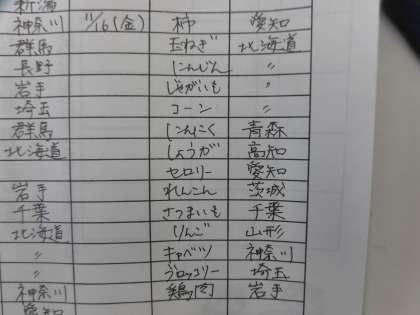 新潟
神奈川 11/16(金) 柿 愛知
群馬 玉ねぎ 北海道
長野 にんじん 〃
岩手 じゃがいも 〃
埼玉 コーン 〃
群馬 にんにく 青森
北海道 しょうが 高知
セロリー 愛知
岩手 れんこん 茨城
千葉 さつまいも 千葉
北海道 りんご 山形
〃 キャベツ 神奈川
〃 ブロッコリー 埼玉
神奈川 鶏肉 岩手
愛知